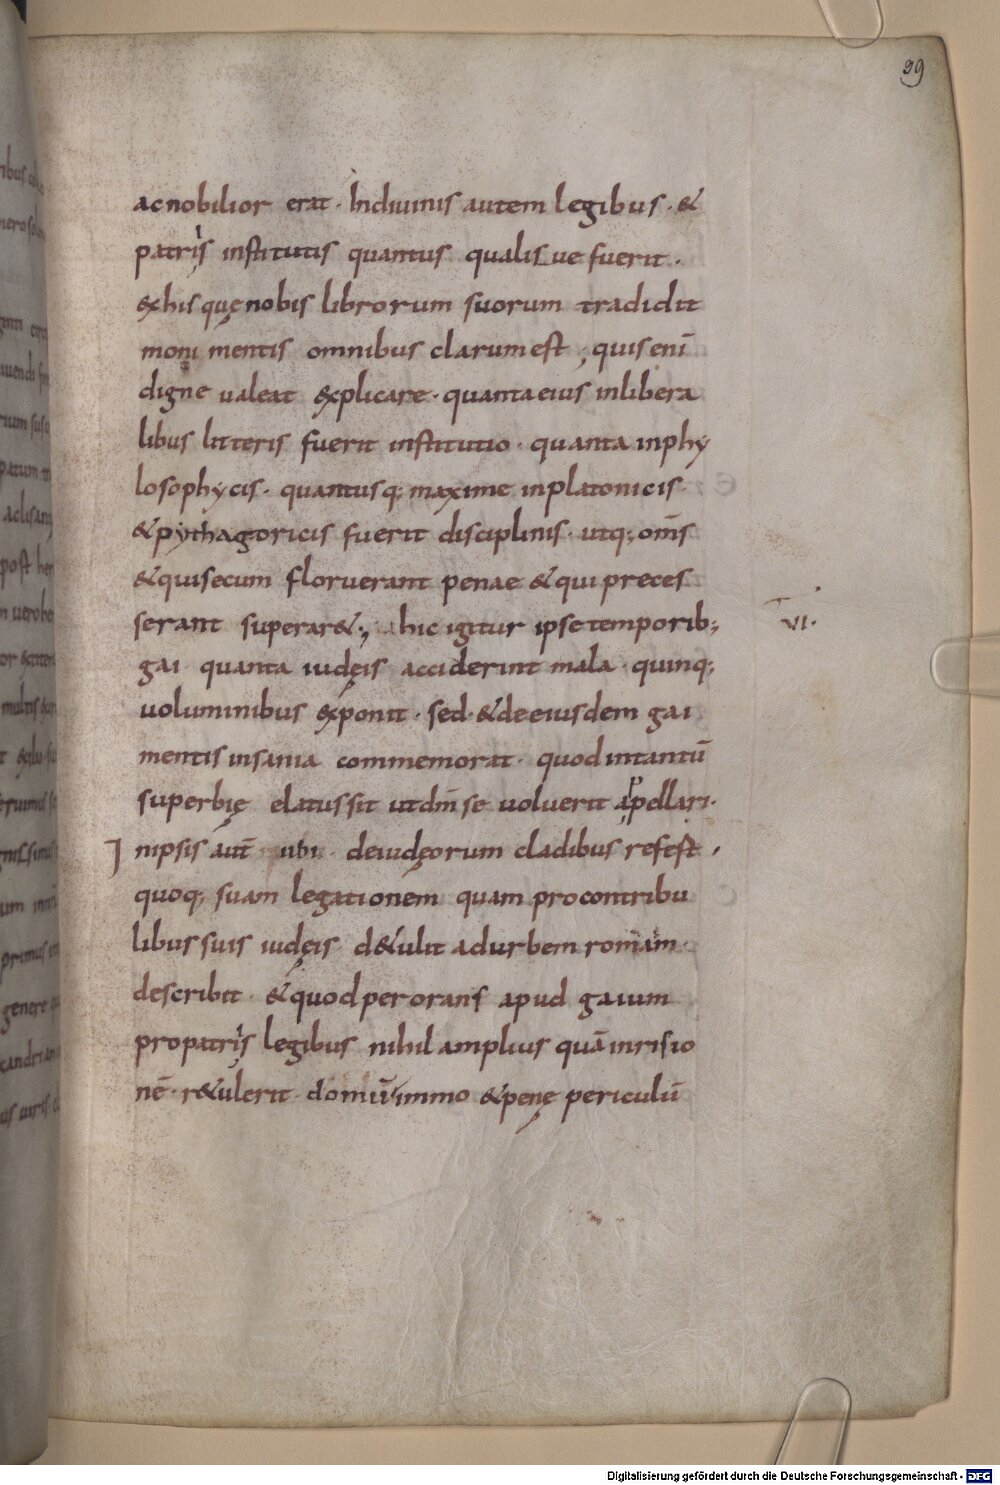 99
ac nobilior erat · Indiuinis autem legibus · &
patriis institutis quantus qualisue fuerit ·
exhis quę nobis librorum suorum tradidit
monimentis omnibus clarum est ; quis enī
digne ualeat explicare · quanta eius inlibera
libus litteris fuerit institutio · quanta inphy
losophycis · quantusq; maxime inplatonicis
& pythagoricis fuerit disciplinis · utq; om̅s
& qui secum floruerant penae & qui preces
serant superar&; hic igitur ipse temporib;
VI·
gai quanta iudęis acciderint mala · quinq;
uoluminibus exponit · sed · & de eiusdem gai
mentis insania commemorat · quod intantū
superbię elatus sit ut dm̅ se uoluerit appellari ·
Inipsis aut̅ ubi deiudęorum cladibus refest ,
quoq; suam legationem quam procontribu
libus suis iudęis d&ulit adurbem romam ·
describit · & quod perorans apud gaium
propatriis legibus nihil amplius quā inrisio
nē · r&ulerit domū immo & penę periculū
Digitalisierung gefördert durch die Deutsche Forschungsgemeinschaft - DFG